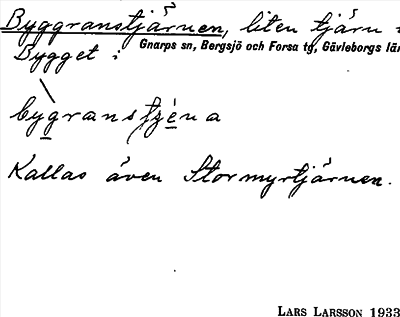 Byggranstjärnen, liten tjärn i
Bygget i
Gnarps sn, Bergsjö och Forsa tg, Gävleborgs län
Kallas även Stormyrtjärnen.
LARS LARSSON 1933